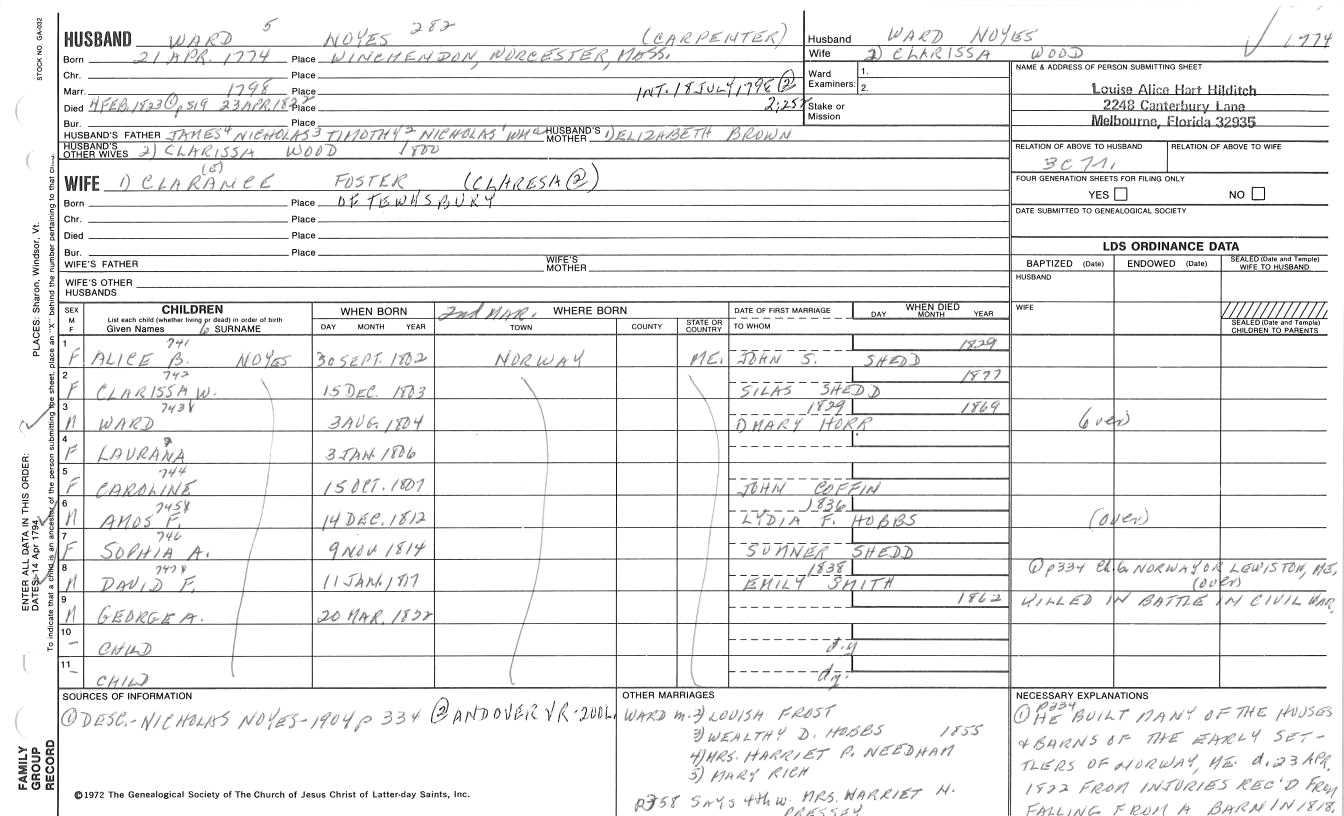 STOCK NO. GA-032
HUSBAND WARD 5 NOYES 282 (CARPENTER)
Born 21 APR. 1774 Place WINCHENDON, WORCESTER, MASS.
Chr. Place
Marr. 1798 Place INT. 18 JULY 1798 ②
Died 4 FEB. 1823 ① p519 23 APR. 1822 Place 2;252
Bur. Place
HUSBAND'S FATHER JAMES⁴ NICHOLAS³ TIMOTHY² NICHOLAS¹ HUSBAND'S MOTHER 1) ELIZABETH BROWN
HUSBAND'S OTHER WIVES 2) CLARISSA WOOD 1800
Husband WARD NOYES
Wife 2) CLARISSA WOOD
Ward Examiners: 1.
2.
Stake or Mission
√ 1774
NAME & ADDRESS OF PERSON SUBMITTING SHEET
Louise Alice Hart Hilditch
2248 Canterbury Lane
Melbourne, Florida 32935
RELATION OF ABOVE TO HUSBAND RELATION OF ABOVE TO WIFE
3C7r.
FOUR GENERATION SHEETS FOR FILING ONLY
YES NO
DATE SUBMITTED TO GENEALOGICAL SOCIETY
WIFE 1) CLARANCE (s) FOSTER (CLARESA ②)
Born Place OF TEWKSBURY
Chr. Place
Died Place
Bur. Place
WIFE'S FATHER WIFE'S MOTHER
WIFE'S OTHER HUSBANDS
LDS ORDINANCE DATA
BAPTIZED (Date) ENDOWED (Date) SEALED (Date and Temple) WIFE TO HUSBAND
HUSBAND
WIFE
SEALED (Date and Temple) CHILDREN TO PARENTS
SEX M F CHILDREN WHEN BORN 2nd MAR. WHERE BORN DATE OF FIRST MARRIAGE WHEN DIED
List each child (whether living or dead) in order of birth
Given Names 6 SURNAME DAY MONTH YEAR TOWN COUNTY STATE OR COUNTRY TO WHOM DAY MONTH YEAR
1 F 741 ALICE B. NOYES 30 SEPT. 1802 NORWAY ME. JOHN S. SHEDD 1829
2 F 742 CLARISSA W. 15 DEC. 1803 SILAS SHEDD 1877
3 M 743 X WARD 3 AUG. 1804 1829 1) MARY HORR 1869 (over)
4 F LAURANA 3 JAN. 1806
5 F 744 CAROLINE 15 OCT. 1807 JOHN COFFIN
6 M 745 X AMOS F. 14 DEC. 1812 1836 LYDIA F. HOBBS (over)
7 F 746 SOPHIA A. 9 NOV 1814 SUMNER SHEDD
8 M 747 X DAVID F. 11 JAN. 1817 1838 EMILY SMITH ① p334 NORWAY OR LEWISTON, ME. (over)
9 M GEORGE A. 20 MAR. 1822 1862 KILLED IN BATTLE IN CIVIL WAR.
10 - CHILD d.y
11 - CHILD dy.
SOURCES OF INFORMATION
① DESC.-NICHOLAS NOYES-1904 p 334 ② ANDOVER VR-
OTHER MARRIAGES
WARD m. 2) LOUISA FROST
3) WEALTHY D. HOBBS 1855
4) MRS. HARRIET P. NEEDHAM
5) MARY RICH
p358 SAYS 4th w. MRS. HARRIET H.
PRESSEY
NECESSARY EXPLANATIONS
① p334 HE BUILT MANY OF THE HOUSES
& BARNS OF THE EARLY SET-
TLERS OF NORWAY, ME. d. 23 APR.
1822 FROM INJURIES REC'D FROM
FALLING FROM A BARN IN 1818.
©1972 The Genealogical Society of The Church of Jesus Christ of Latter-day Saints, Inc.
FAMILY GROUP RECORD
ENTER ALL DATA IN THIS ORDER:
DATES: 14 Apr 1794
PLACES: Sharon, Windsor, Vt.
To indicate that a child is an ancestor of the person submitting the sheet, place an "X" behind the number pertaining to that child.